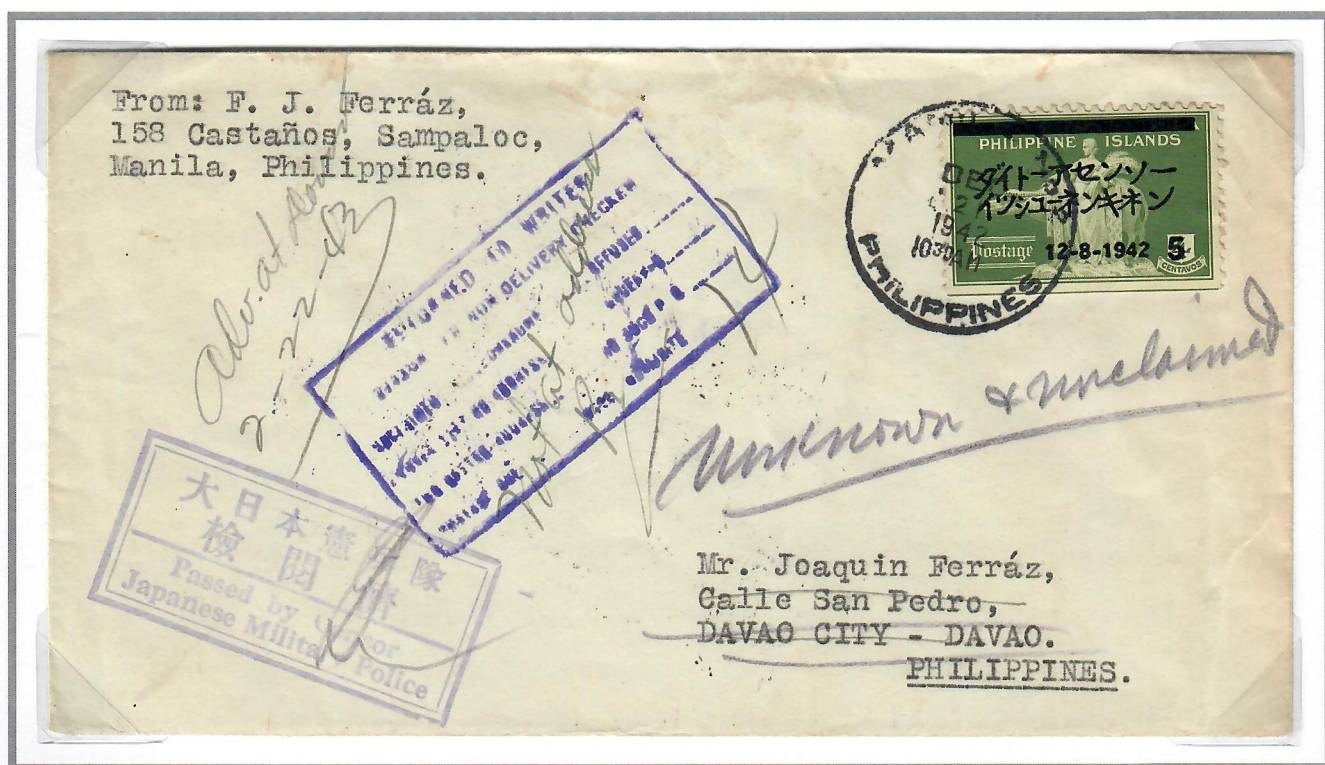 From: F. J. Ferráz,
158 Castaños, Sampaloc,
Manila, Philippines.
PHILIPPINE ISLANDS
ダイトーアセンソー
イッシューネンキネン
12-8-1942 5
Postage
CENTAVOS
27
1942
10 30 AM
PHILIPPINES
RETURNED TO WRITER
REASON FOR NON DELIVERY CHECKED
UNCLAIMED
REFUSED
Not at address
2-22-43
Unknown & unclaimed
大日本憲兵隊
検閲済
Passed by Censor
Japanese Military Police
Mr. Joaquin Ferráz,
Calle San Pedro,
DAVAO CITY - DAVAO.
PHILIPPINES.